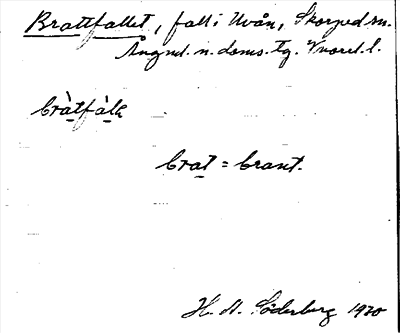 Brattfallet, fall i Uvån, Skorped sn.
Ångml. n. doms. tg. Vnorrl. l.
bràtfàlı
brat = brant.
H. Söderberg 1970